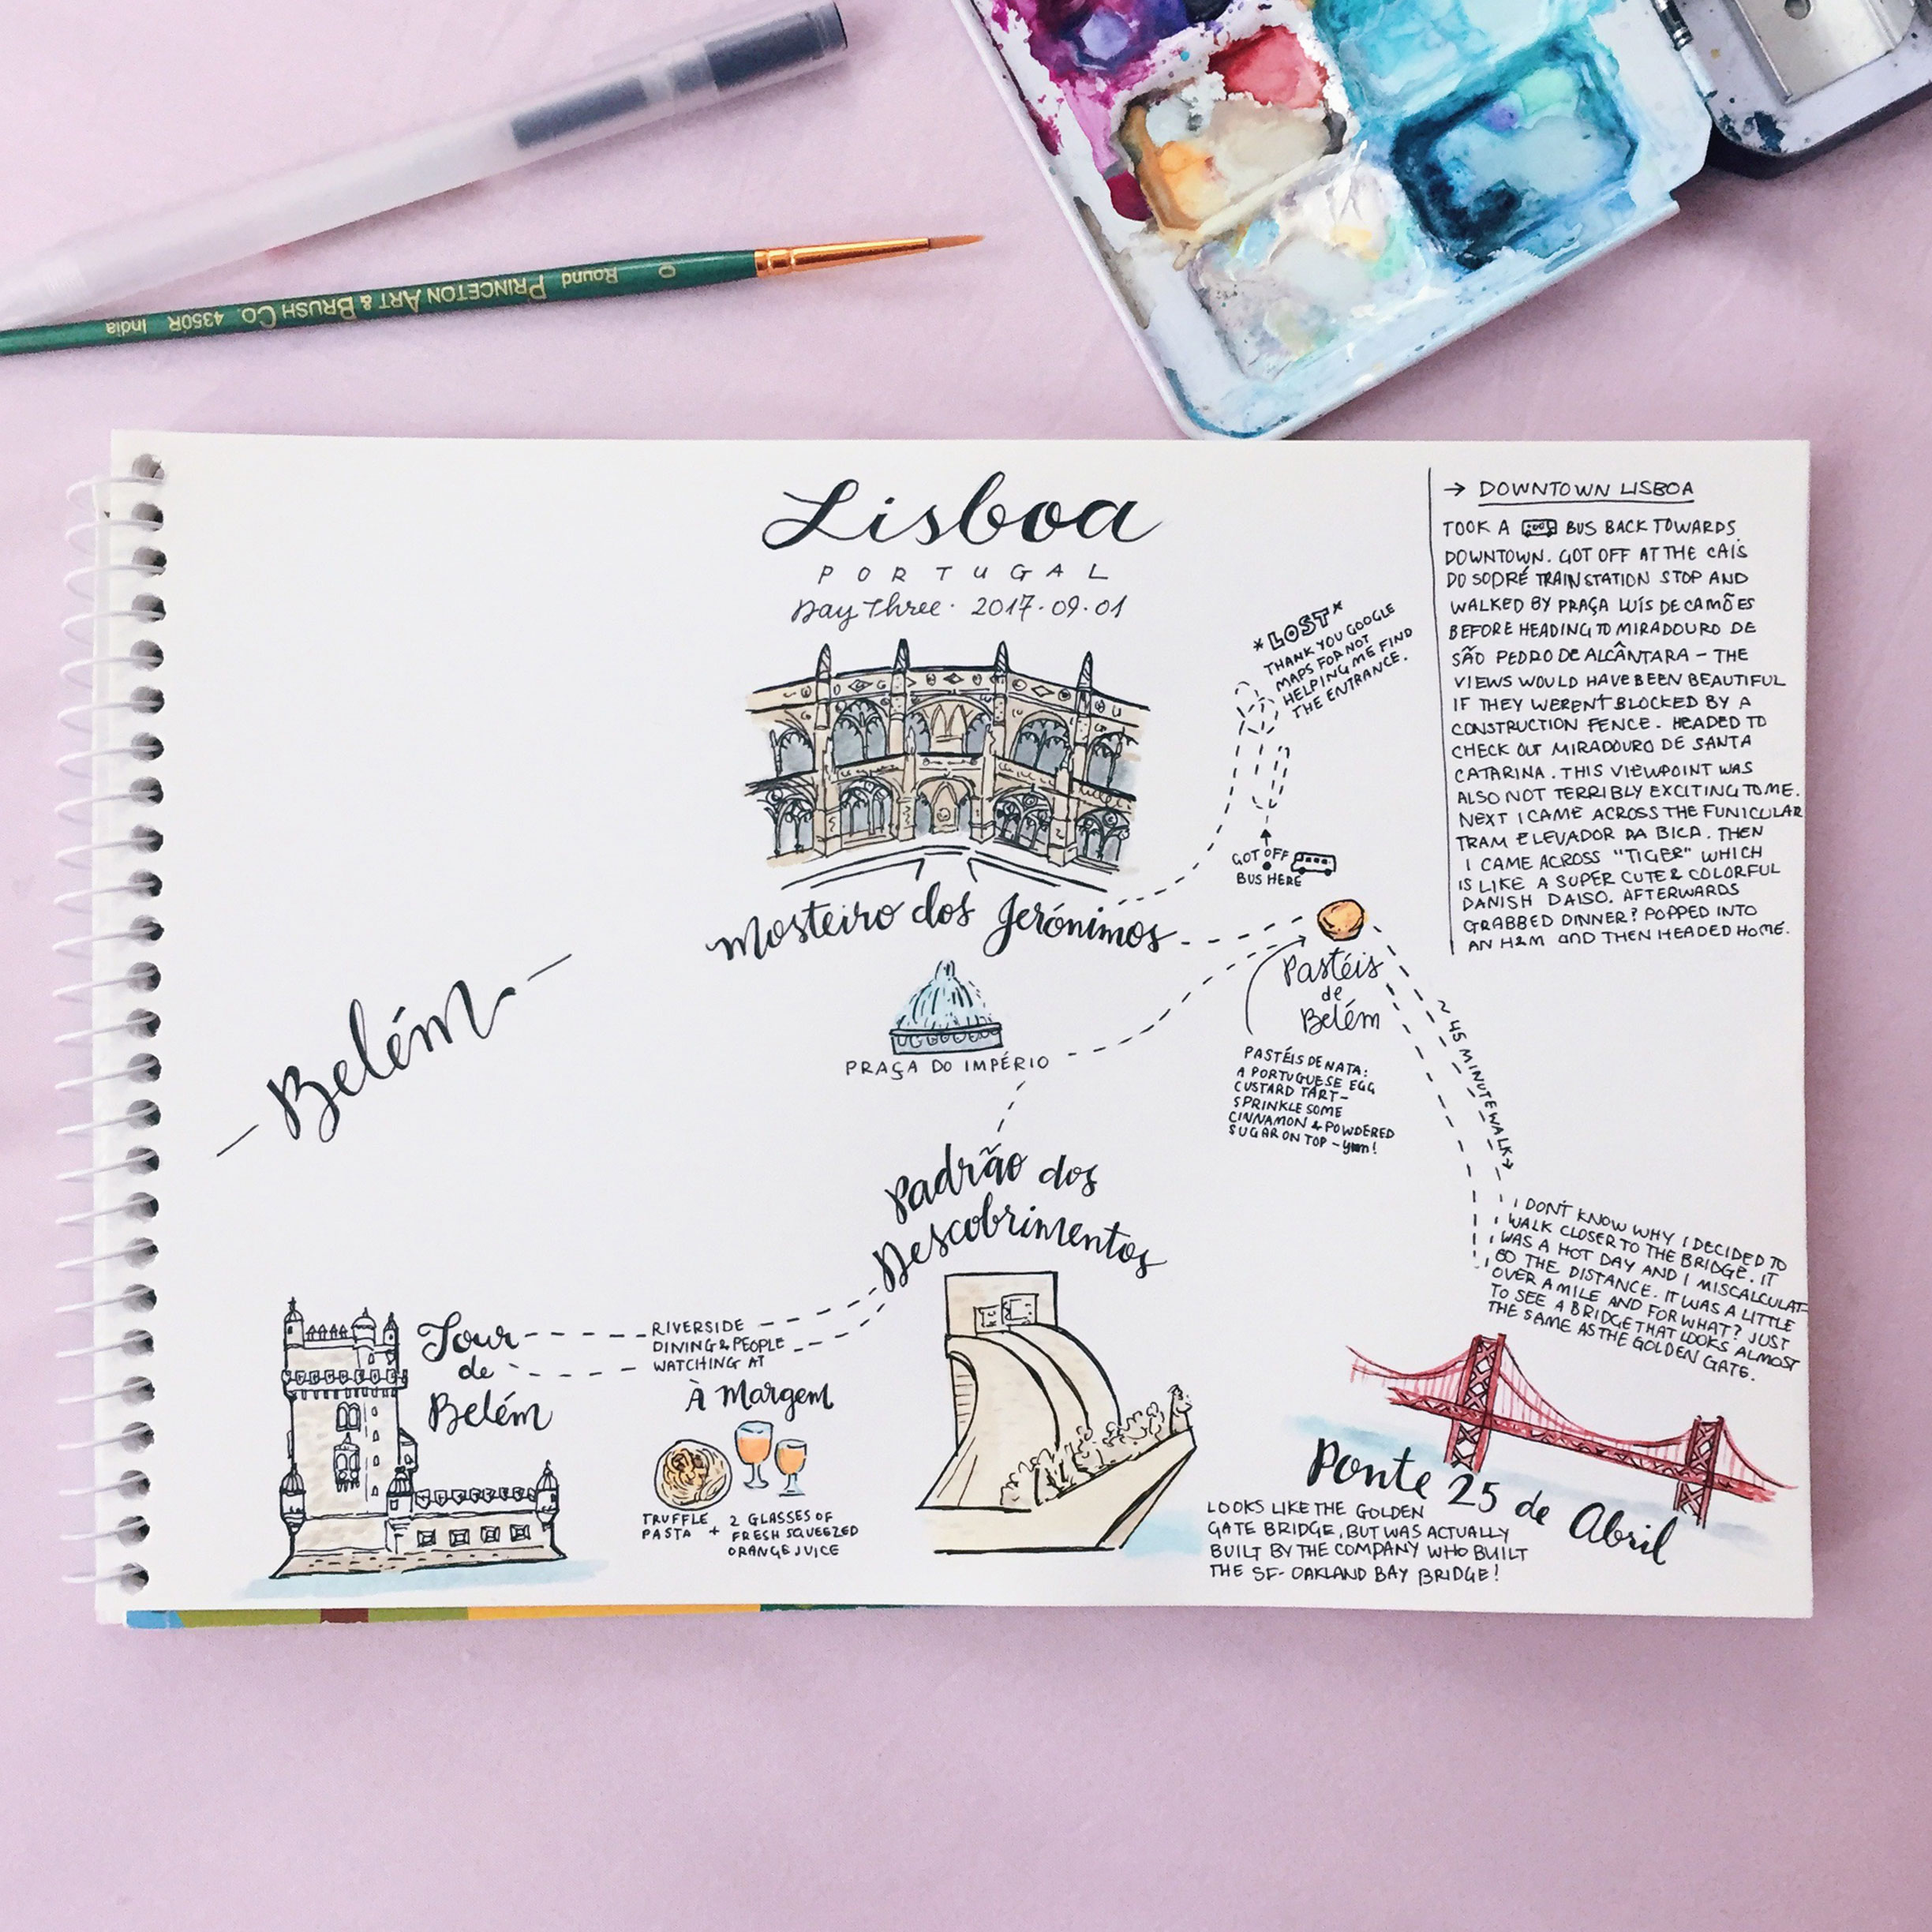 PRINCETON ART & BRUSH CO. 4350R India
Round 0
Lisboa
PORTUGAL
Day Three · 2017·09·01
*LOST*
THANK YOU GOOGLE
MAPS FOR NOT
HELPING ME FIND
THE ENTRANCE.
GOT OFF
BUS HERE
Mosteiro dos Jerónimos
PRAÇA DO IMPÉRIO
Pastéis
de
Belém
PASTÉIS DE NATA:
A PORTUGUESE EGG
CUSTARD TART–
SPRINKLE SOME
CINNAMON & POWDERED
SUGAR ON TOP – yum!
~45 MINUTE WALK→
Belém
Padrão dos
Descobrimentos
Tour
de
Belém
RIVERSIDE
DINING & PEOPLE
WATCHING AT
À Margem
TRUFFLE
PASTA + 2 GLASSES OF
FRESH SQUEEZED
ORANGE JUICE
I DON'T KNOW WHY I DECIDED TO
WALK CLOSER TO THE BRIDGE. IT
WAS A HOT DAY AND I MISCALCULAT-
ED THE DISTANCE. IT WAS A LITTLE
OVER A MILE AND FOR WHAT? JUST
TO SEE A BRIDGE THAT LOOKS ALMOST
THE SAME AS THE GOLDEN GATE.
Ponte 25 de Abril
LOOKS LIKE THE GOLDEN
GATE BRIDGE, BUT WAS ACTUALLY
BUILT BY THE COMPANY WHO BUILT
THE SF-OAKLAND BAY BRIDGE!
→ DOWNTOWN LISBOA
TOOK A BUS BACK TOWARDS
DOWNTOWN. GOT OFF AT THE CAIS
DO SODRÉ TRAIN STATION STOP AND
WALKED BY PRAÇA LUÍS DE CAMÕES
BEFORE HEADING TO MIRADOURO DE
SÃO PEDRO DE ALCÂNTARA – THE
VIEWS WOULD HAVE BEEN BEAUTIFUL
IF THEY WEREN'T BLOCKED BY A
CONSTRUCTION FENCE. HEADED TO
CHECK OUT MIRADOURO DE SANTA
CATARINA. THIS VIEWPOINT WAS
ALSO NOT TERRIBLY EXCITING TO ME.
NEXT I CAME ACROSS THE FUNICULAR
TRAM ELEVADOR DA BICA. THEN
I CAME ACROSS "TIGER" WHICH
IS LIKE A SUPER CUTE & COLORFUL
DANISH DAISO. AFTERWARDS
GRABBED DINNER? POPPED INTO
AN H&M AND THEN HEADED HOME.